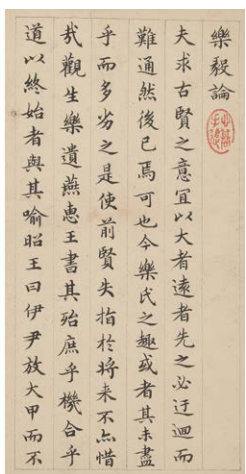 樂毅論
夫求古賢之意宜以大者遠者先之必迂迴而
難通然後已焉可也今樂氏之趣或者其未盡
乎而多劣之是使前賢失指於將來不亦惜
哉觀生樂遺燕惠王書其殆庶乎機合乎
道以終始者與其喻昭王曰伊尹放大甲而不